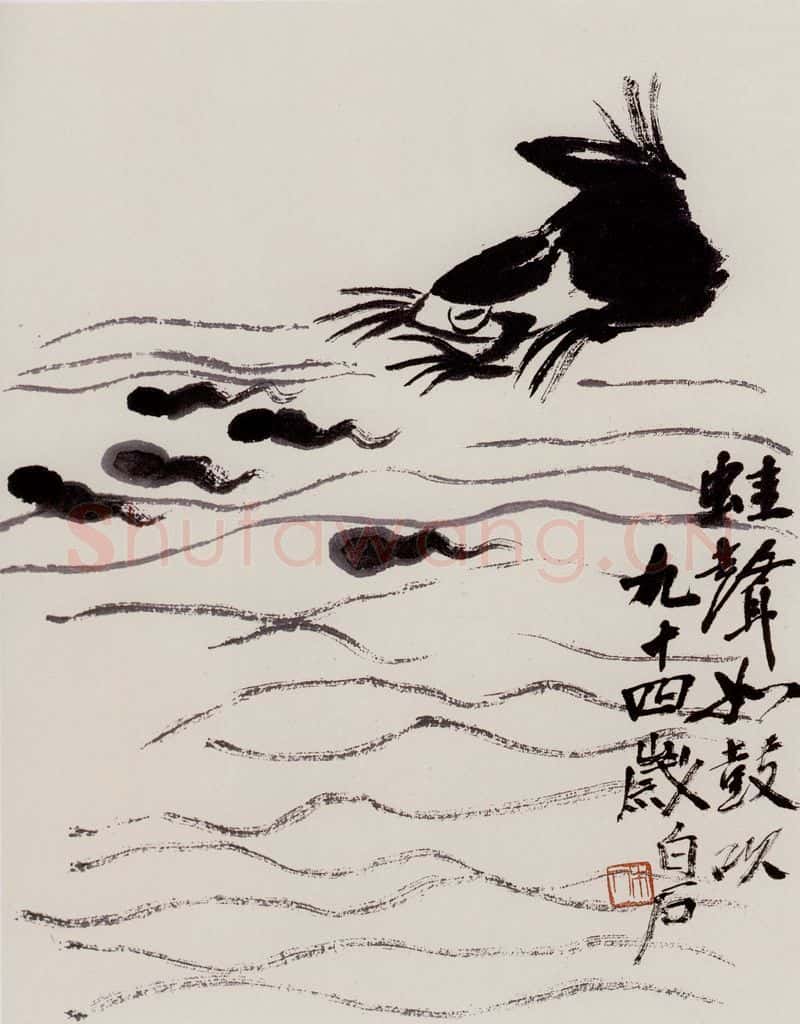 蛙聲如鼓吹
九十四歲白石
Shufawang.CN